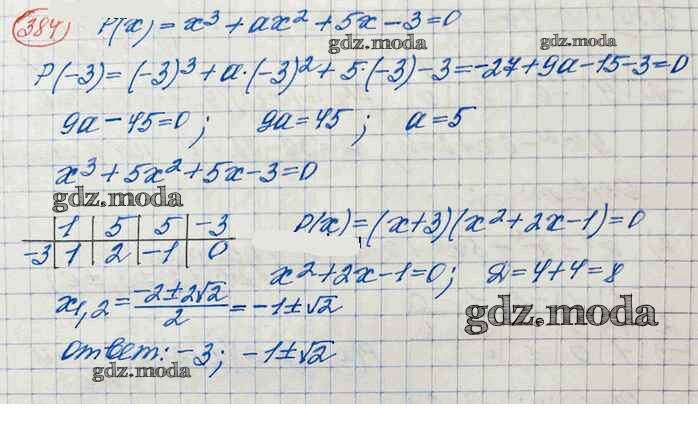 384) P(x) = x³ + ax² + 5x - 3 = 0
gdz.moda gdz.moda
P(-3) = (-3)³ + a·(-3)² + 5·(-3) - 3 = -27 + 9a - 15 - 3 = 0
9a - 45 = 0; 9a = 45; a = 5
x³ + 5x² + 5x - 3 = 0
gdz.moda
1 5 5 -3
-3 1 2 -1 0
P(x) = (x+3)(x² + 2x - 1) = 0
x² + 2x - 1 = 0; D = 4 + 4 = 8
x1,2 = (-2 ± 2√2)/2 = -1 ± √2
gdz.moda
Ответ: -3; -1 ± √2
gdz.moda